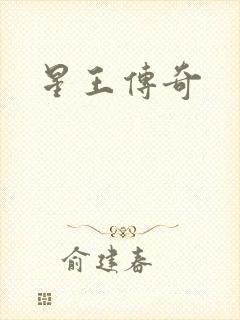 星王傳奇
俞建春